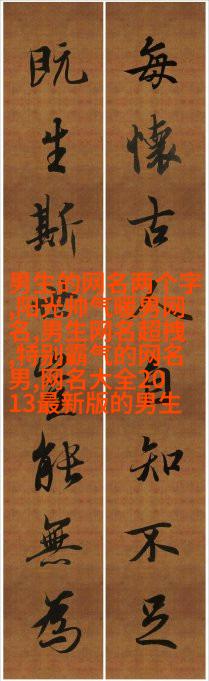 每懷古人自知不足
既生斯能無為
男生的网名两个字
,阳光帅气暖男网
名,男生网名超拽
,特别霸气的网名
男,网名大全20
13最新版的男生